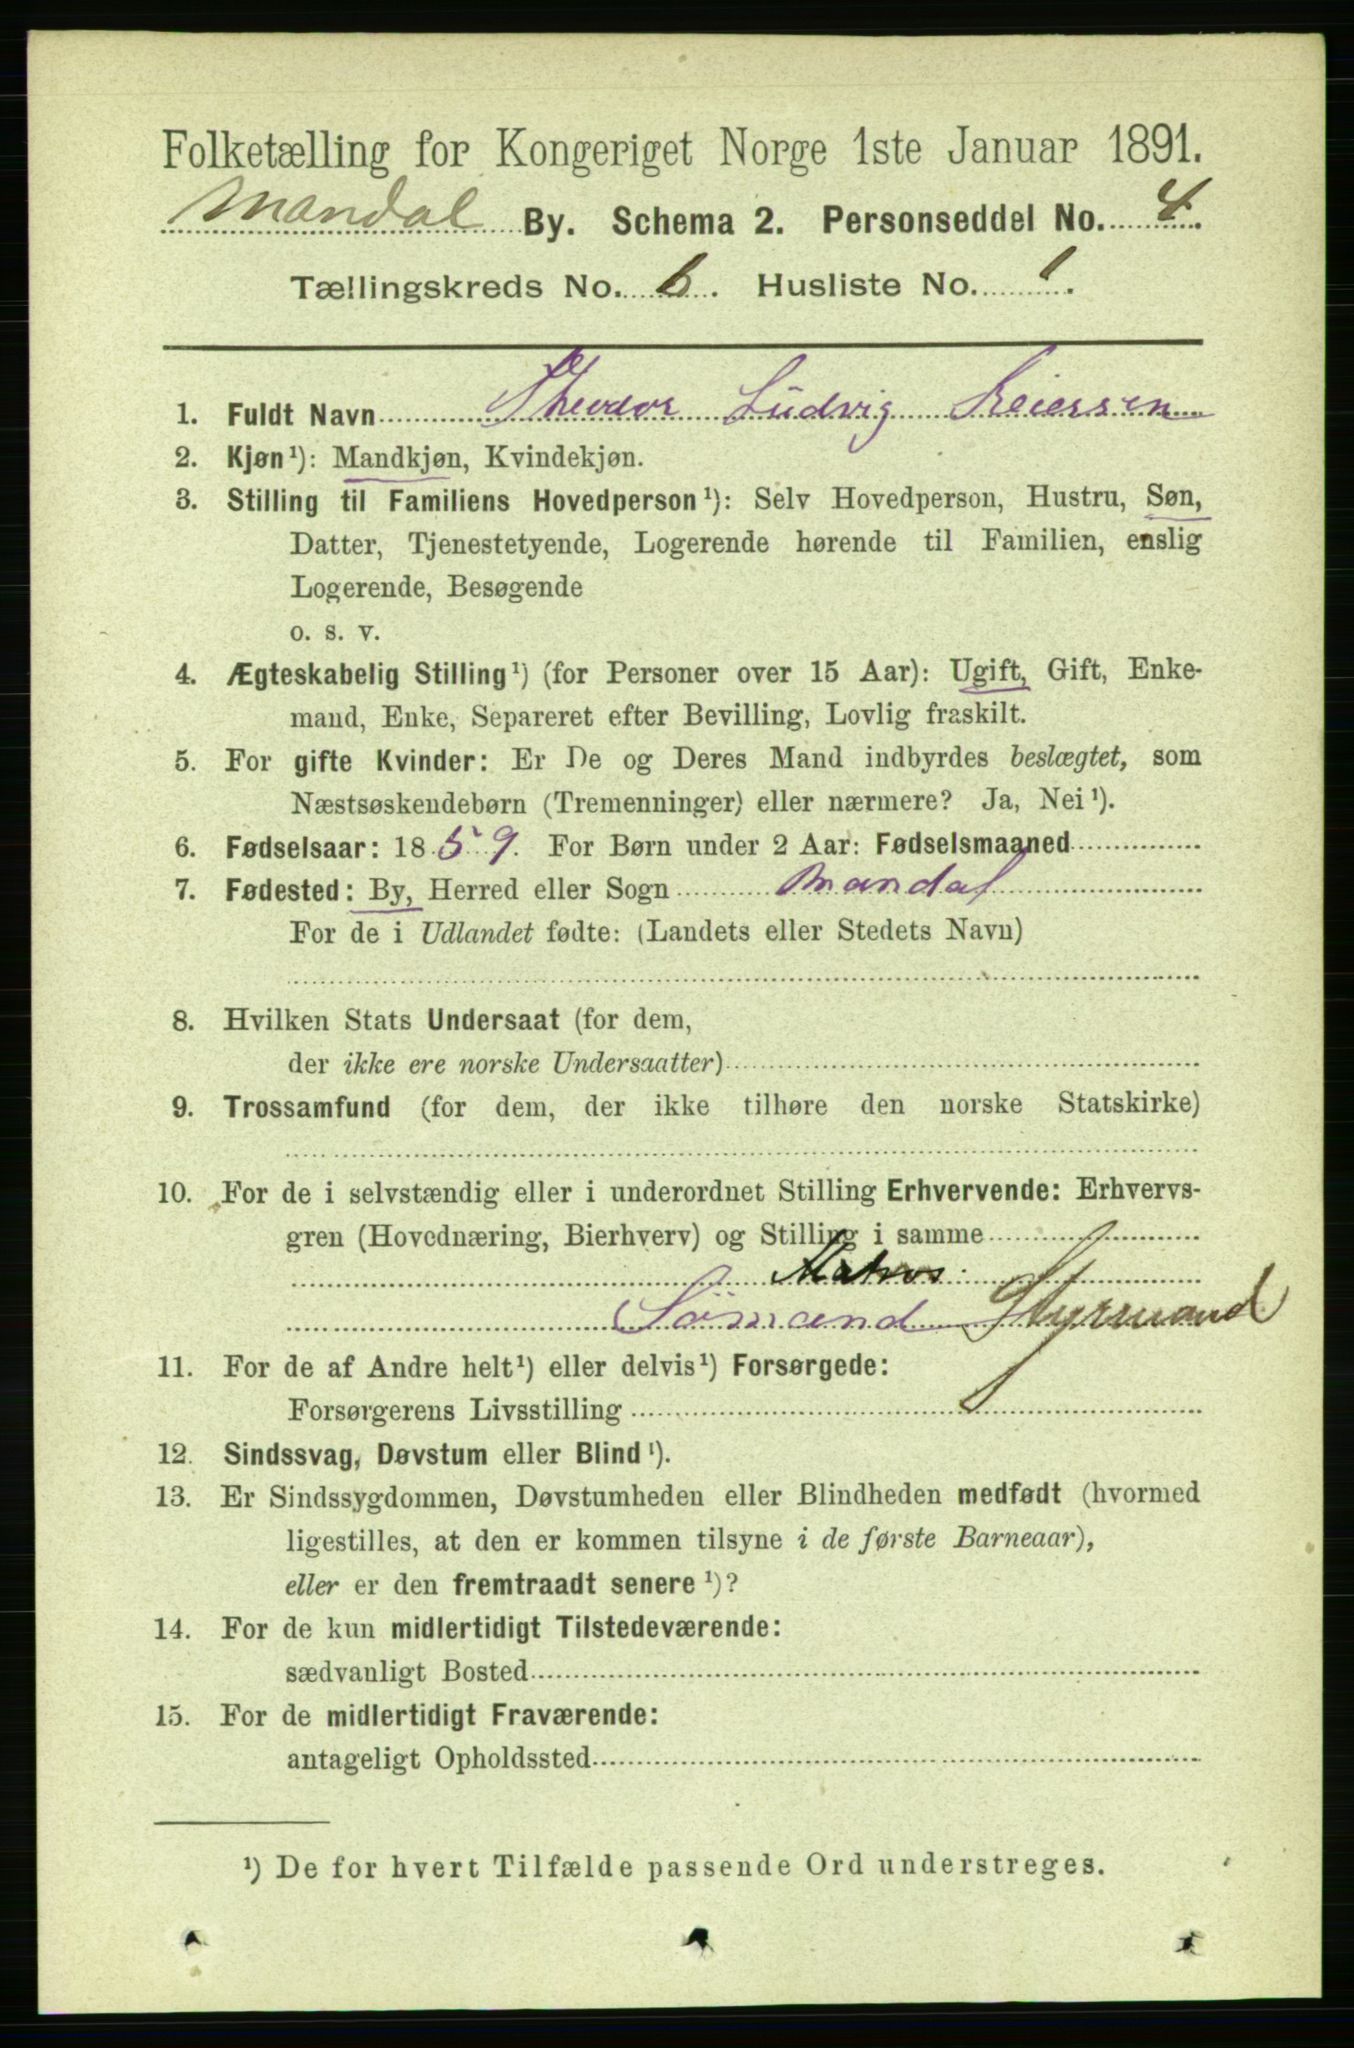 Folketælling for Kongeriget Norge 1ste Januar 1891.
Mandal By. Schema 2. Personseddel No. 4.
Tællingskreds No. 6. Husliste No. 1.
1. Fuldt Navn Theodor Ludvig Reiersen
2. Kjøn¹): Mandkjøn, Kvindekjøn.
3. Stilling til Familiens Hovedperson¹): Selv Hovedperson, Hustru, Søn,
Datter, Tjenestetyende, Logerende hørende til Familien, enslig
Logerende, Besøgende
o. s. v.
4. Ægteskabelig Stilling¹) (for Personer over 15 Aar): Ugift, Gift, Enke-
mand, Enke, Separeret efter Bevilling, Lovlig fraskilt.
5. For gifte Kvinder: Er De og Deres Mand indbyrdes beslægtet, som
Næstsøskendebørn (Tremenninger) eller nærmere? Ja, Nei¹).
6. Fødselsaar: 1859. For Børn under 2 Aar: Fødselsmaaned
7. Fødested: By, Herred eller Sogn Mandal
For de i Udlandet fødte: (Landets eller Stedets Navn)
8. Hvilken Stats Undersaat (for dem,
der ikke ere norske Undersaatter)
9. Trossamfund (for dem, der ikke tilhøre den norske Statskirke)
10. For de i selvstændig eller i underordnet Stilling Erhvervende: Erhvervs-
gren (Hovednæring, Bierhverv) og Stilling i samme
Matros
Sömand Styrmand
11. For de af Andre helt¹) eller delvis¹) Forsørgede:
Forsørgerens Livsstilling
12. Sindssvag, Døvstum eller Blind¹).
13. Er Sindssygdommen, Døvstumheden eller Blindheden medfødt (hvormed
ligestilles, at den er kommen tilsyne i de første Barneaar),
eller er den fremtraadt senere¹)?
14. For de kun midlertidigt Tilstedeværende:
sædvanligt Bosted
15. For de midlertidigt Fraværende:
antageligt Opholdssted
¹) De for hvert Tilfælde passende Ord understreges.